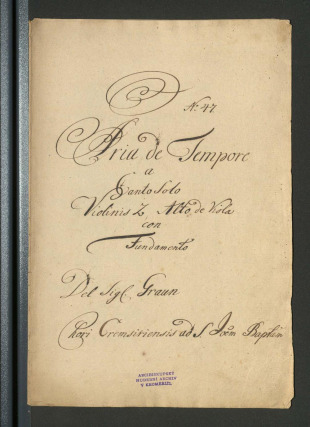 No 47
Aria de Tempore
a
Canto Solo
Violinis 2 Alto de Viola
con
Fundamento
Del Sigl Graun
Chori Cremsiriensis ad S. Joan Baptim
ARCIBISKUPSKÝ
HUDEBNÍ ARCHIV
V KROMĚŘÍŽI.